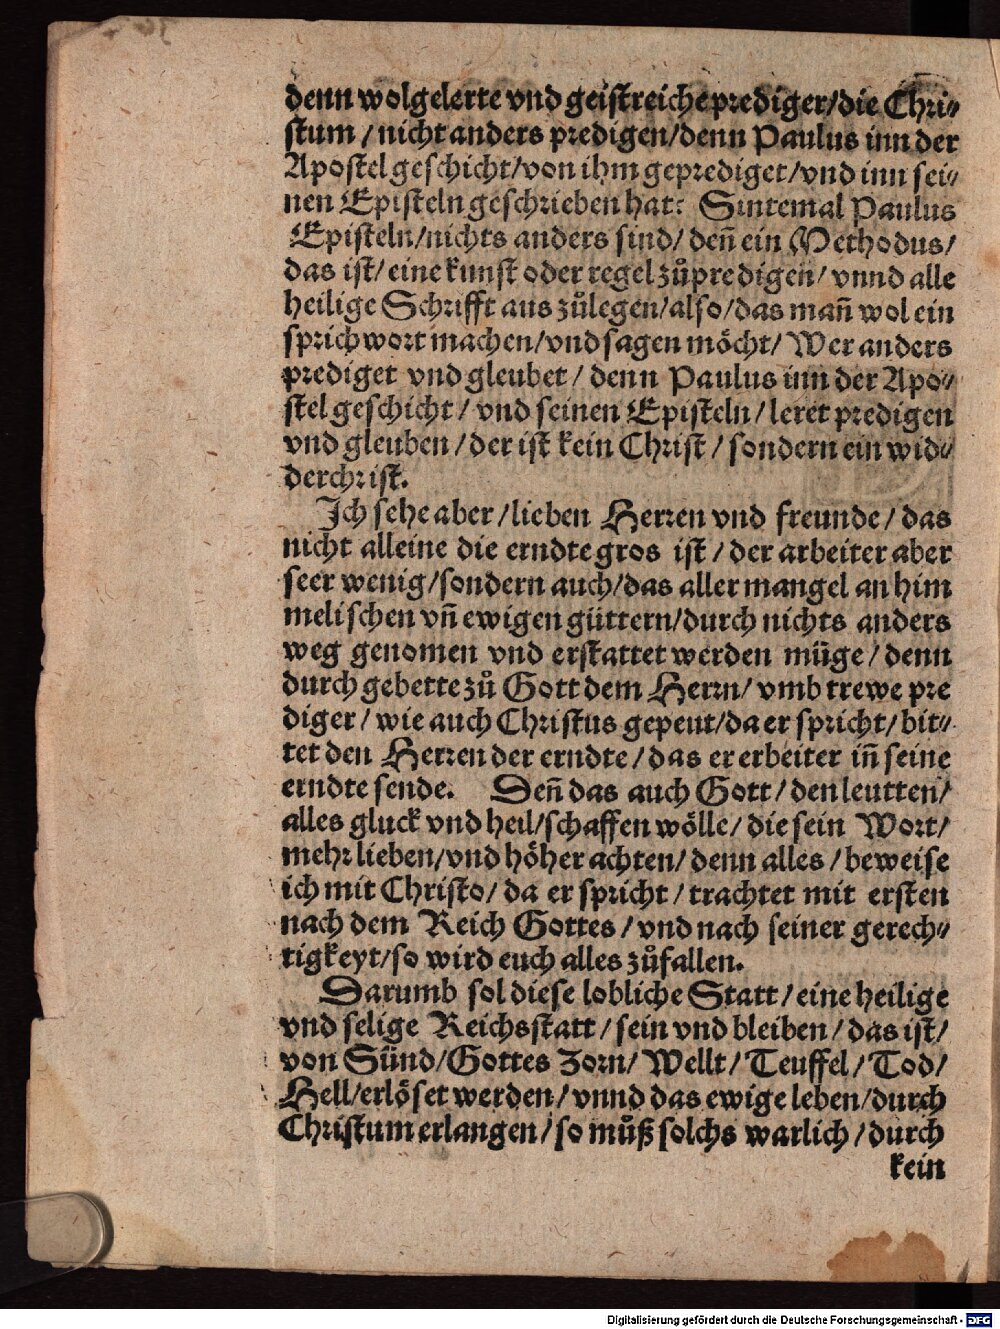 denn wolgelerte vnd geistreiche prediger/die Chri⸗
stum / nicht anders predigen/denn Paulus inn der
Apostel geschicht/von ihm geprediget/vnd inn sei⸗
nen Episteln geschrieben hat: Sintemal Paulus
Episteln/nichts anders sind/ deñ ein Methodus/
das ist/ eine kunst oder regel zůpredigen/ vnnd alle
heilige Schrifft aus zůlegen/also/das mañ wol ein
sprichwort machen/vnd sagen möcht/ Wer anders
prediget vnd gleubet / denn Paulus inn der Apo⸗
stel geschicht / vnd seinen Episteln / leret predigen
vnd gleuben / der ist kein Christ / sondern ein wid⸗
derchrist.
Ich sehe aber /lieben Herren vnd freunde / das
nicht alleine die erndte gros ist / der arbeiter aber
seer wenig/sondern auch/das aller mangel an him
melischen vñ ewigen güttern/durch nichts anders
weg genomen vnd erstattet werden müge / denn
durch gebette zů Gott dem Herrn/ vmb trewe pre
diger / wie auch Christus gepeut/da er spricht/ bit⸗
tet den Herren der erndte / das er erbeiter iñ seine
erndte sende. Deñ das auch Gott / den leutten/
alles gluck vnd heil/schaffen wölle/ die sein Wort/
mehr lieben/vnd höher achten/ denn alles / beweise
ich mit Christo/ da er spricht / trachtet mit ersten
nach dem Reich Gottes / vnd nach seiner gerech⸗
tigkeyt/so wird euch alles zůfallen.
Darumb sol diese lobliche Statt / eine heilige
vnd selige Reichsstatt / sein vnd bleiben / das ist/
von Sünd/Gottes Zorn/ Wellt / Teuffel / Tod/
Hell/erlöset werden/ vnnd das ewige leben/durch
Christum erlangen/ so můß solchs warlich / durch
kein
Digitalisierung gefördert durch die Deutsche Forschungsgemeinschaft - DFG